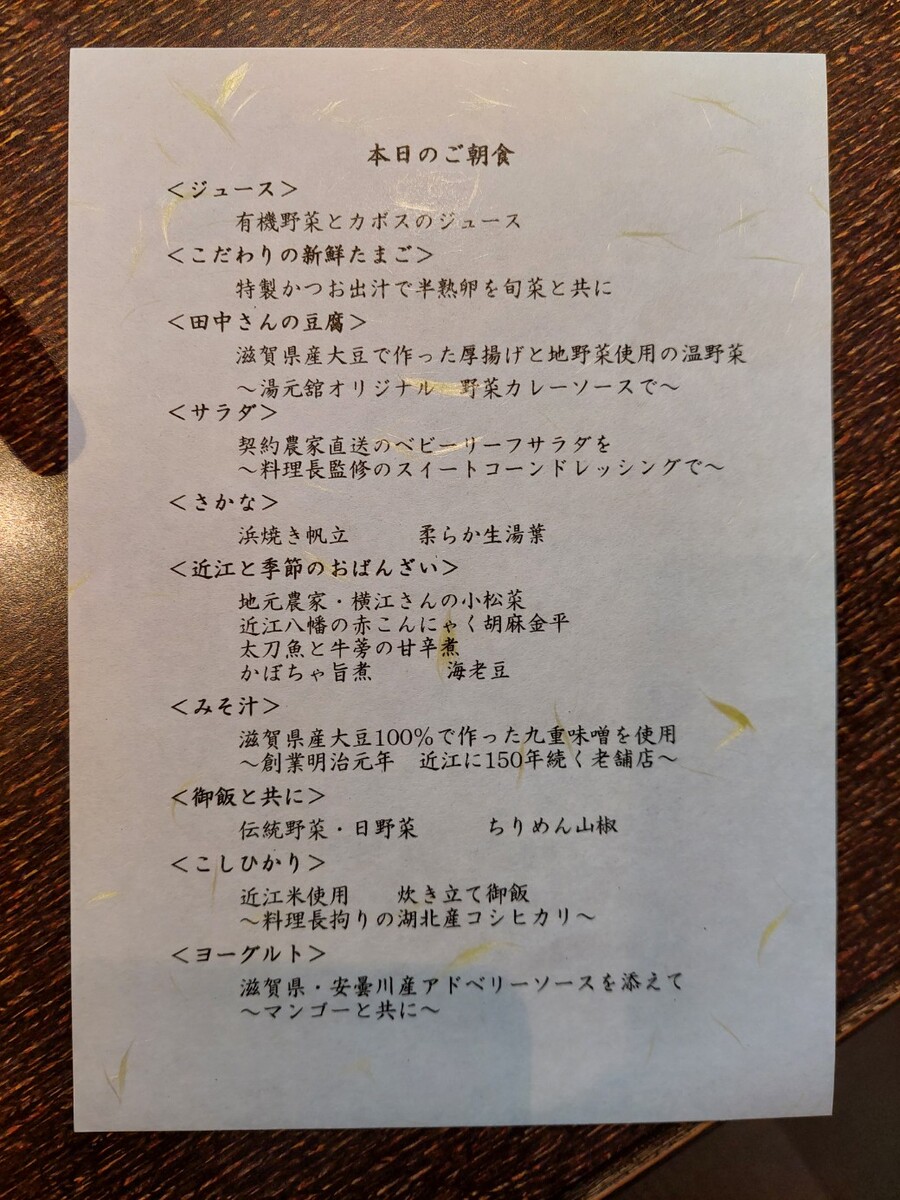 本日のご朝食
＜ジュース＞
有機野菜とカボスのジュース
＜こだわりの新鮮たまご＞
特製かつお出汁で半熟卵を旬菜と共に
＜田中さんの豆腐＞
滋賀県産大豆で作った厚揚げと地野菜使用の温野菜
～湯元舘オリジナル　野菜カレーソースで～
＜サラダ＞
契約農家直送のベビーリーフサラダを
～料理長監修のスイートコーンドレッシングで～
＜さかな＞
浜焼き帆立　　　柔らか生湯葉
＜近江と季節のおばんざい＞
地元農家・横江さんの小松菜
近江八幡の赤こんにゃく胡麻金平
太刀魚と牛蒡の甘辛煮
かぼちゃ旨煮　　　海老豆
＜みそ汁＞
滋賀県産大豆100％で作った九重味噌を使用
～創業明治元年　近江に150年続く老舗店～
＜御飯と共に＞
伝統野菜・日野菜　　　ちりめん山椒
＜こしひかり＞
近江米使用　　炊き立て御飯
～料理長拘りの湖北産コシヒカリ～
＜ヨーグルト＞
滋賀県・安曇川産アドベリーソースを添えて
～マンゴーと共に～